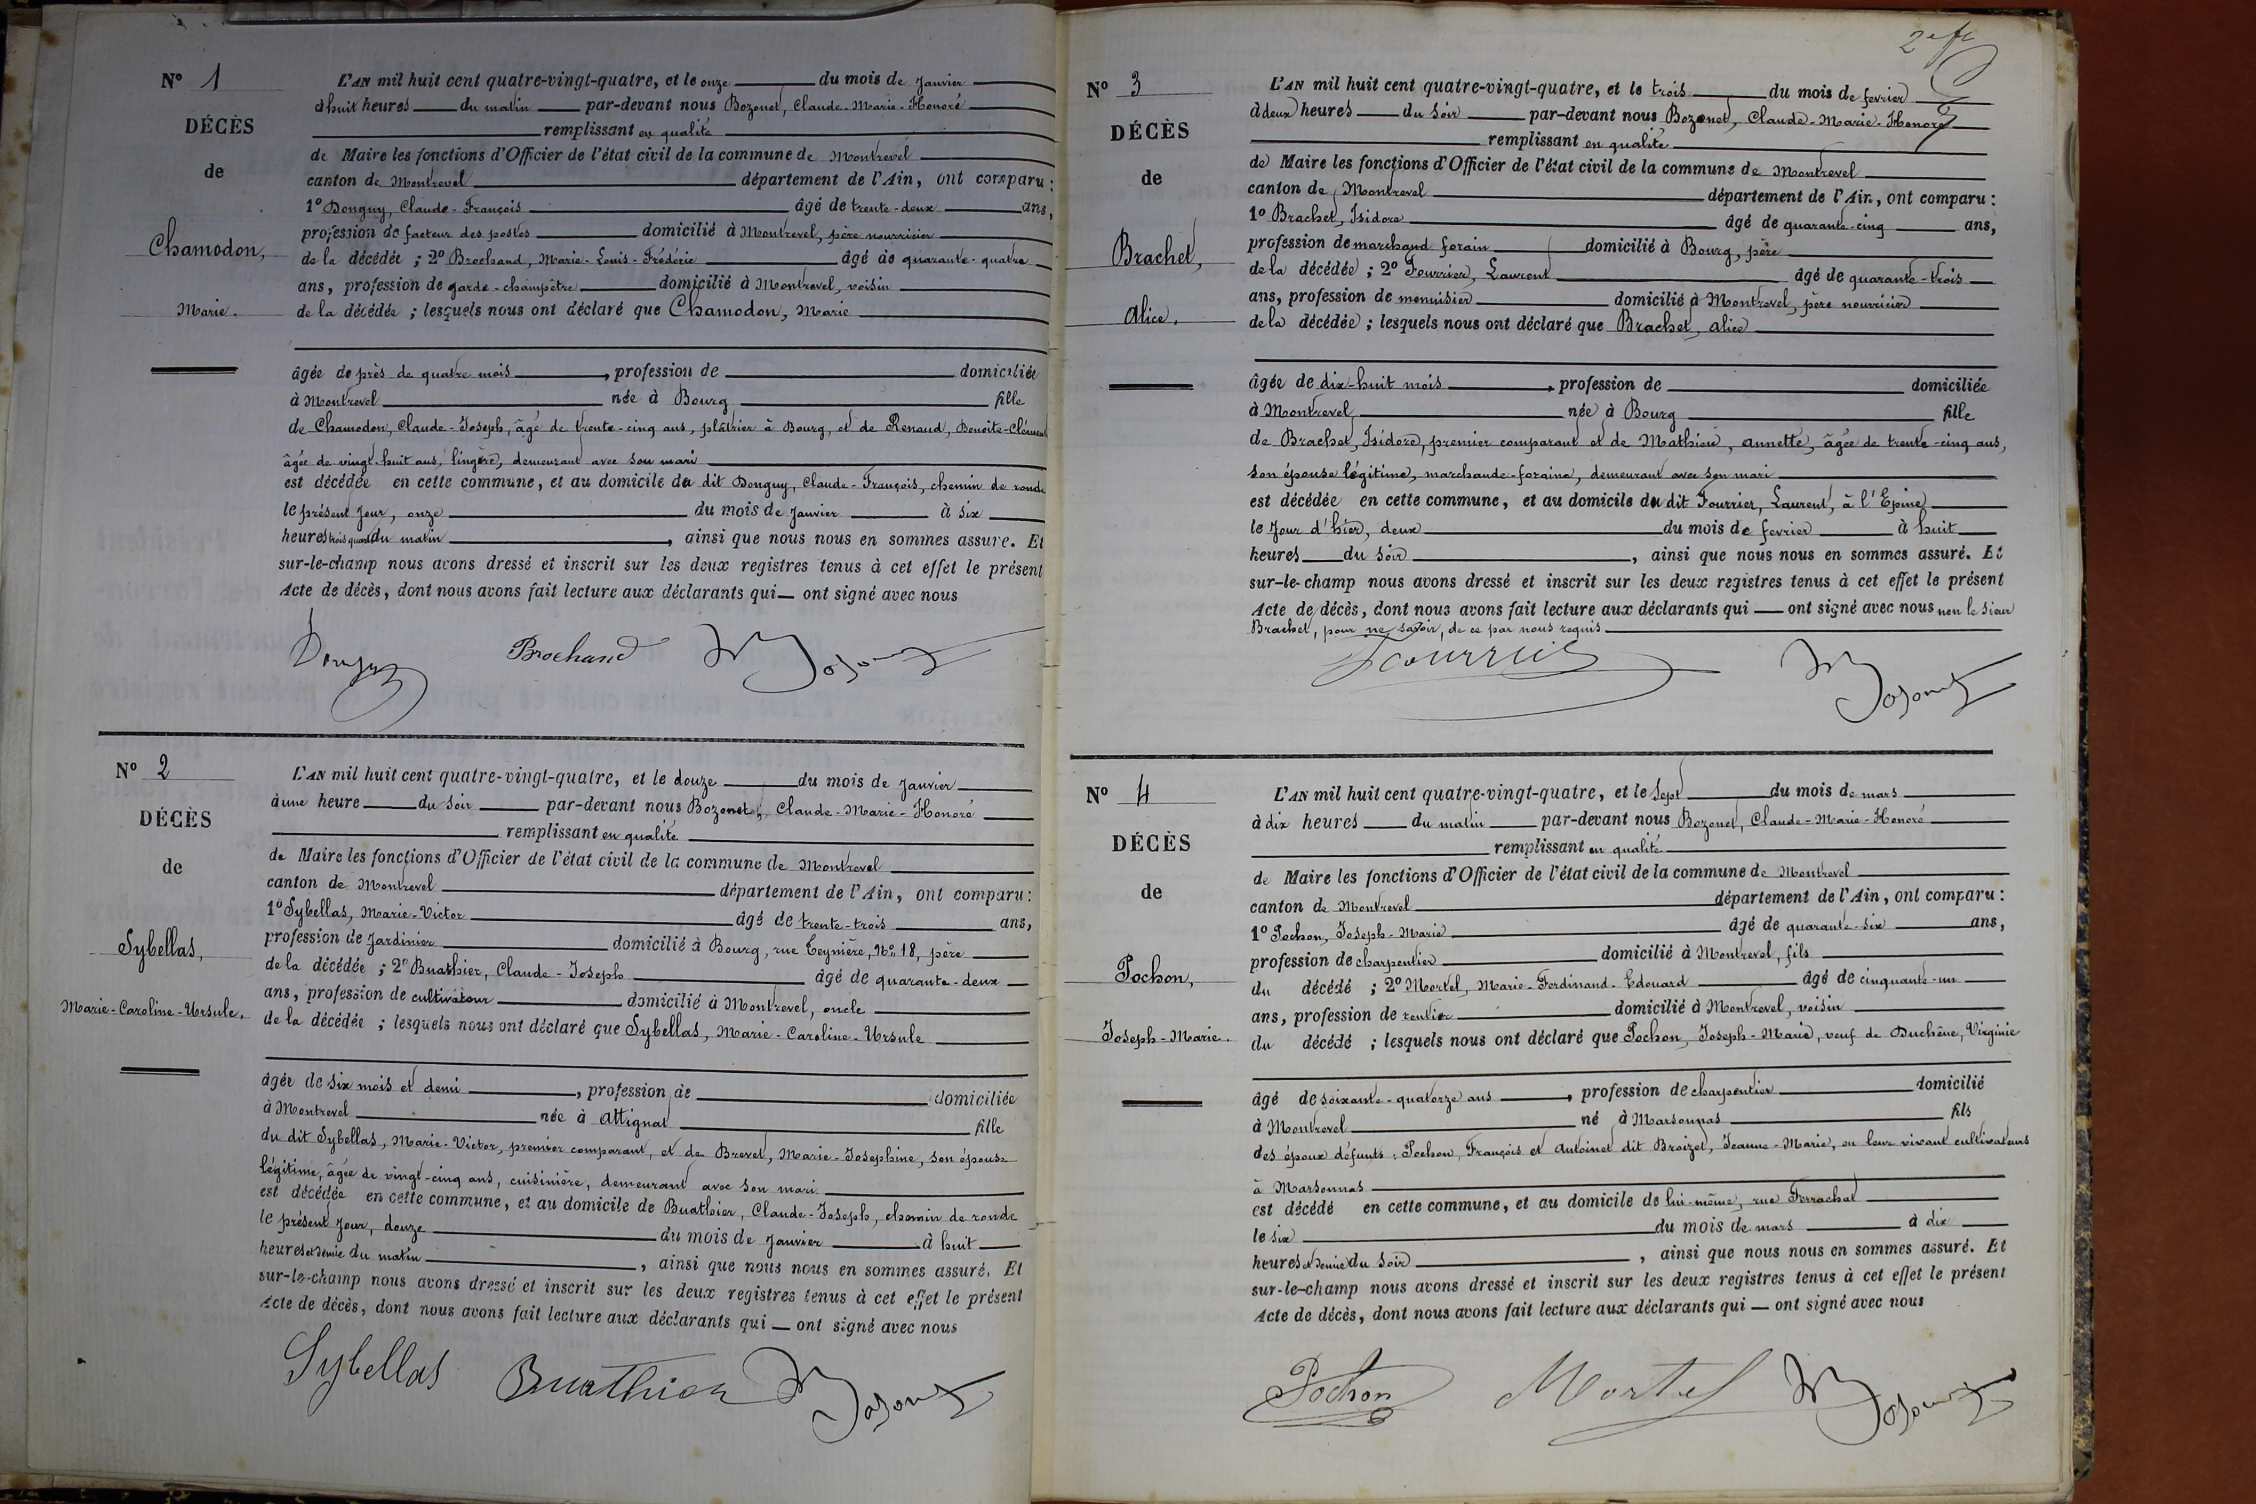 N° 1
DÉCÈS
de
Chamodon,
Marie.
L'AN mil huit cent quatre-vingt-quatre, et le onze du mois de Janvier
à huit heures du matin par-devant nous Bozonet, Claude-Marie-Honoré
remplissant en qualité
de Maire les fonctions d'Officier de l'état civil de la commune de Montrevel
canton de Montrevel département de l'Ain, ont comparu :
1° Donguy, Claude-François âgé de trente-deux ans,
profession de facteur des postes domicilié à Montrevel, père nourricier
de la décédée ; 2° Brochand, Marie-Louis-Frédéric âgé de quarante-quatre
ans, profession de garde-champêtre domicilié à Montrevel, voisin
de la décédée ; lesquels nous ont déclaré que Chamodon, Marie
âgée de près de quatre mois, profession de domiciliée
à Montrevel née à Bourg fille
de Chamodon, Claude-Joseph, âgé de trente-cinq ans, plâtrier à Bourg, et de Renaud, Benoîte-Clémen
âgée de vingt-huit ans, lingère, demeurant avec son mari
est décédée en cette commune, et au domicile du dit Donguy, Claude-François, chemin de ronde
le présent jour, onze du mois de Janvier à six
heures trois quarts du matin, ainsi que nous nous en sommes assuré. Et
sur-le-champ nous avons dressé et inscrit sur les deux registres tenus à cet effet le présent
Acte de décès, dont nous avons fait lecture aux déclarants qui ont signé avec nous
Donguy Brochand Bozonet
N° 2
DÉCÈS
de
Sybellas,
Marie-Caroline-Ursule.
L'AN mil huit cent quatre-vingt-quatre, et le douze du mois de Janvier
à une heure du soir par-devant nous Bozonet, Claude-Marie-Honoré
remplissant en qualité
de Maire les fonctions d'Officier de l'état civil de la commune de Montrevel
canton de Montrevel département de l'Ain, ont comparu :
1° Sybellas, Marie-Victor âgé de trente-trois ans,
profession de Jardinier domicilié à Bourg, rue Teynière, N° 18, père
de la décédée ; 2° Buathier, Claude-Joseph âgé de quarante-deux
ans, profession de cultivateur domicilié à Montrevel, oncle
de la décédée ; lesquels nous ont déclaré que Sybellas, Marie-Caroline-Ursule
âgée de six mois et demi, profession de domiciliée
à Montrevel née à Attignat fille
du dit Sybellas, Marie-Victor, premier comparant, et de Brevet, Marie-Josephine, son épouse
légitime, âgée de vingt-cinq ans, cuisinière, demeurant avec son mari
est décédée en cette commune, et au domicile de Buathier, Claude-Joseph, chemin de ronde
le présent jour, douze du mois de Janvier à huit
heures et demie du matin, ainsi que nous nous en sommes assuré. Et
sur-le-champ nous avons dressé et inscrit sur les deux registres tenus à cet effet le présent
Acte de décès, dont nous avons fait lecture aux déclarants qui ont signé avec nous
Sybellas Buathier Bozonet
N° 3
DÉCÈS
de
Brachet,
Alice.
L'AN mil huit cent quatre-vingt-quatre, et le trois du mois de fevrier
à deux heures du soir par-devant nous Bozonet, Claude-Marie-Honoré
remplissant en qualité
de Maire les fonctions d'Officier de l'état civil de la commune de Montrevel
canton de Montrevel département de l'Ain, ont comparu :
1° Brachet, Isidore âgé de quarante-cinq ans,
profession de marchand forain domicilié à Bourg, père
de la décédée ; 2° Fourrier, Laurent âgé de quarante-trois
ans, profession de menuisier domicilié à Montrevel, père nourricier
de la décédée ; lesquels nous ont déclaré que Brachet, Alice
âgée de dix-huit mois, profession de domiciliée
à Montrevel née à Bourg fille
de Brachet, Isidore, premier comparant et de Mathieu, annette, âgée de trente-cinq ans,
son épouse légitime, marchande-foraine, demeurant avec son mari
est décédée en cette commune, et au domicile du dit Fourrier, Laurent, à l'Epine
le Jour d'hier, deux du mois de fevrier à huit
heures du soir, ainsi que nous nous en sommes assuré. Et
sur-le-champ nous avons dressé et inscrit sur les deux registres tenus à cet effet le présent
Acte de décès, dont nous avons fait lecture aux déclarants qui ont signé avec nous non le sieur
Brachet, pour ne savoir, de ce par nous requis
Fourrier Bozonet
N° 4
DÉCÈS
de
Pochon,
Joseph-Marie.
L'AN mil huit cent quatre-vingt-quatre, et le Sept du mois de mars
à dix heures du matin par-devant nous Bozonet, Claude-Marie-Honoré
remplissant en qualité
de Maire les fonctions d'Officier de l'état civil de la commune de Montrevel
canton de Montrevel département de l'Ain, ont comparu :
1° Pochon, Joseph-Marie âgé de quarante-six ans,
profession de charpentier domicilié à Montrevel, fils
du décédé ; 2° Mortel, Marie-Ferdinand-Edouard âgé de cinquante-un
ans, profession de rentier domicilié à Montrevel, voisin
du décédé ; lesquels nous ont déclaré que Pochon, Joseph-Marie, veuf de Duchêne, Virginie
âgé de soixante-quatorze ans, profession de charpentier domicilié
à Montrevel né à Marsonnas fils
des époux défunts : Pochon, François et Antoinet dit Broizet, Jeanne-Marie, en leur vivant cultivateurs
à Marsonnas
est décédé en cette commune, et au domicile de lui-même, rue Ferrachat
le six du mois de mars à dix
heures et demie du soir, ainsi que nous nous en sommes assuré. Et
sur-le-champ nous avons dressé et inscrit sur les deux registres tenus à cet effet le présent
Acte de décès, dont nous avons fait lecture aux déclarants qui ont signé avec nous
Pochon Mortel Bozonet